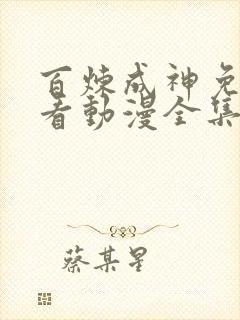 百炼成神免
看動漫全集
蔡某星